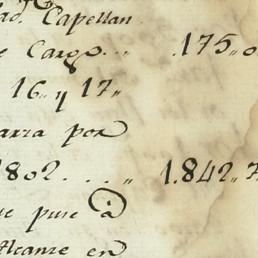 ad. Capellan
e Cargo... 175,,0
16 y 17,,
arra por
1802....,, 1.842,,7
e puse à
Alcanze en